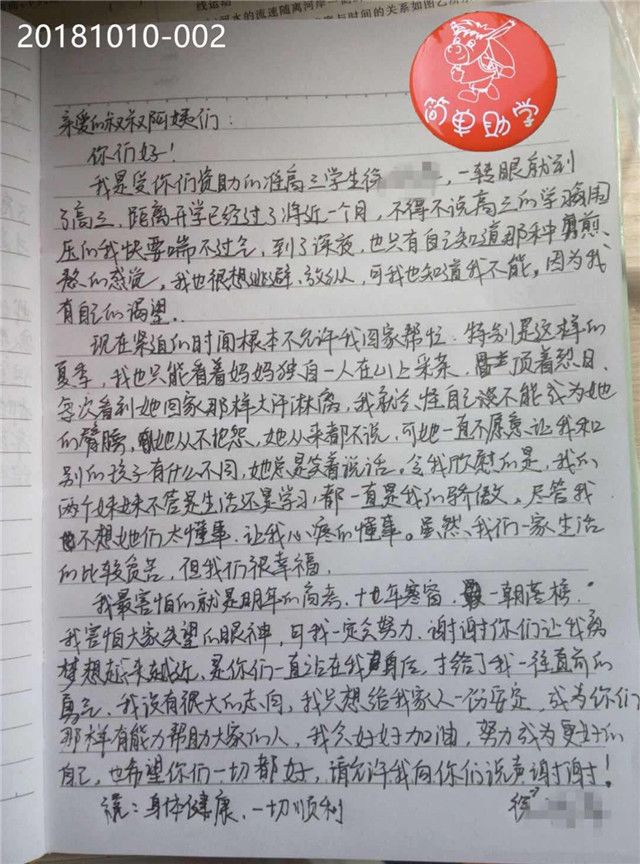 线运动
河水的流速随离河岸
与时间的关系如图乙所示
20181010-002
简单助学
亲爱的叔叔阿姨们：
你们好！
我是受你们资助的准高三学生徐，一转眼就到
了高三，距离开学已经过了将近一个月，不得不说高三的学习周围
压的我快要喘不过气，到了深夜，也只有自己知道那种煎
熬的感觉，我也很想逃避、放纵，可我也知道我不能。因为我
有自己的渴望..
现在紧迫的时间根本不允许我回家帮忙.特别是这样的
夏季，我也只能看着妈妈独自一人在山上采茶，顶着烈日.
每次看到她回家那样大汗淋漓，我就会怪自己没不能成为她
的臂膀，她从不抱怨，她从来都不说，可她一直不愿意让我和
别的孩子有什么不同，她总是笑着说话。令我欣慰的是，我的
两个妹妹不管是生活还是学习，都一直是我们的骄傲。尽管我
也不想她们太懂事，让我心疼的懂事。虽然、我们一家生活
的比较贫苦，但我们很幸福.
我最害怕的就是明年的高考.十年寒窗，一朝落榜.
我害怕大家失望的眼神，可我一定会努力.谢谢你们让我离
梦想越来越近、是你们一直站在我身后，才给了我一往直前的
勇气.我没有很大的志向，我只想给我家人一份安定，成为你们
那样有能力帮助大家的人，我会好好加油，努力成为更好的
自己，也希望你们一切都好，请允许我向你们说声谢谢！
祝：身体健康、一切顺利
徐